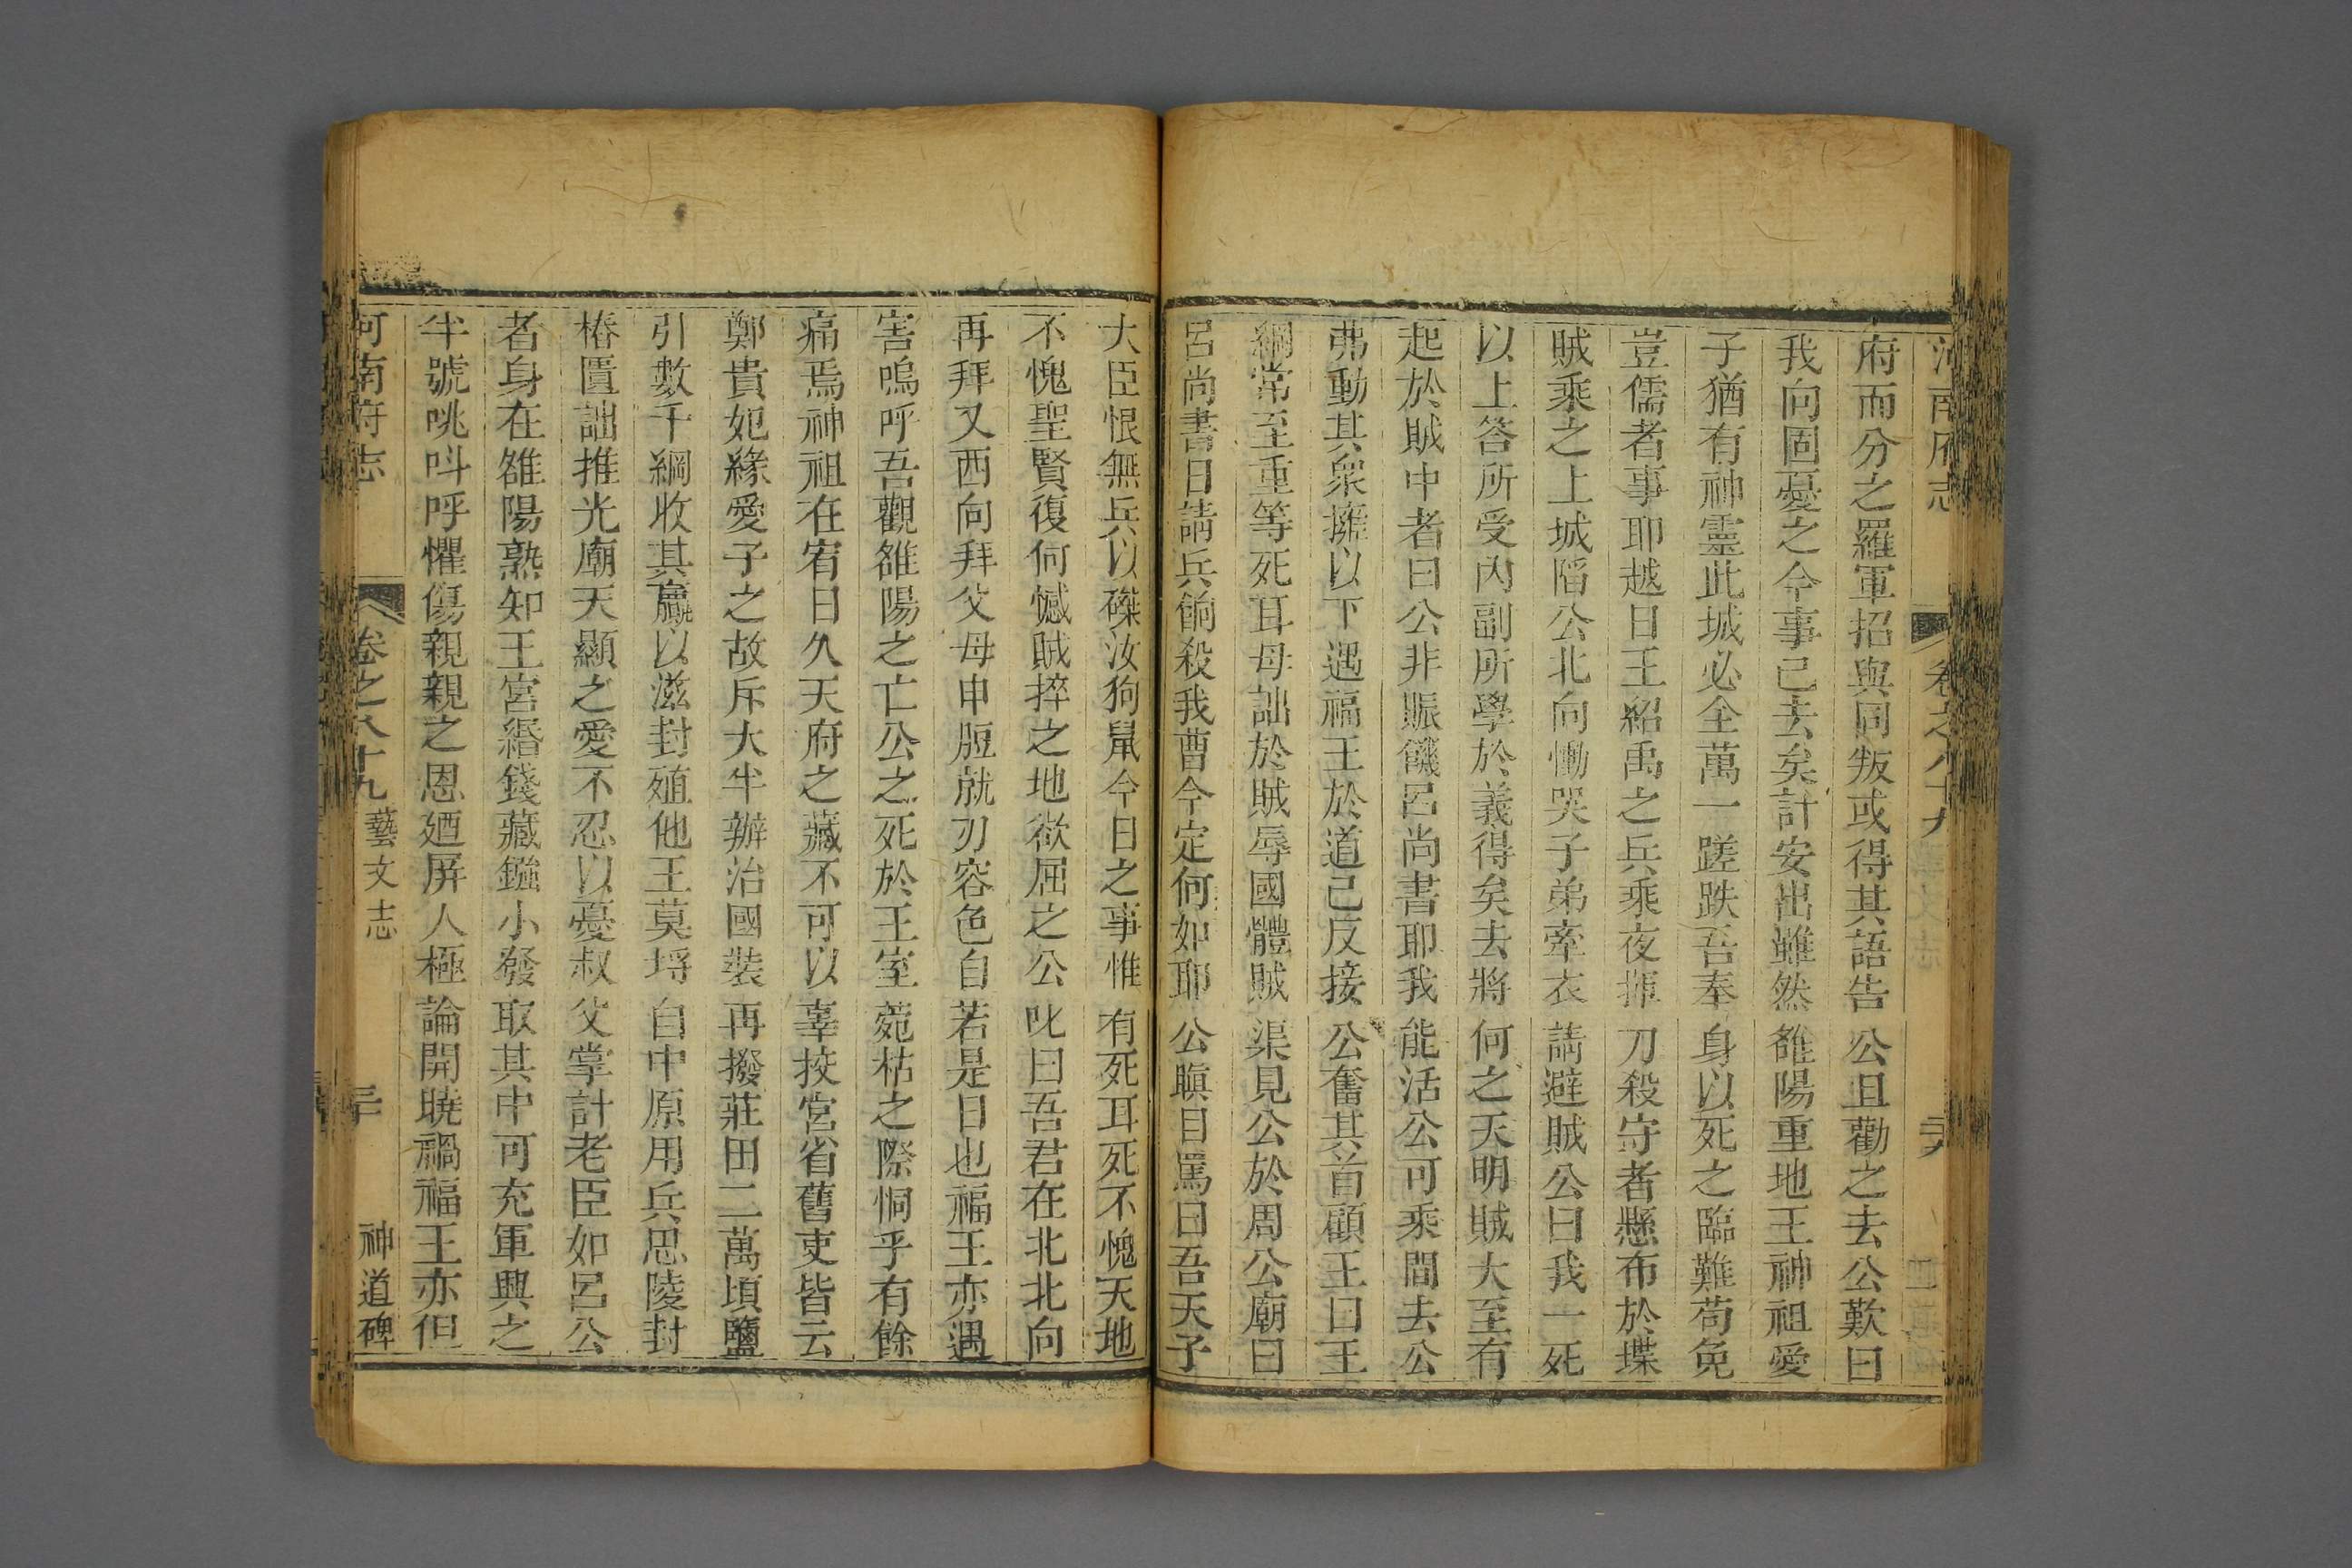 河南府志 卷之八十九
府而分之羅軍招與同叛或得其語告公且勸之去公歎曰
我向固憂之今事已去矣計安出雖然雒陽重地王神祖愛
子猶有神靈此城必全萬一蹉跌吾奉身以死之臨難苟免
豈儒者事耶越日王紹禹之兵乘夜揮刀殺守者懸布於堞
賊乘之上城陷公北向慟哭子弟牽衣請避賊公曰我一死
以上答所受內副所學於義得矣去將何之天明賊大至有
起於賊中者曰公非賑饑呂尚書耶我能活公可乘間去公
弗動其衆擁以下遇福王於道已反接公奮其首顧王曰王
綱常至重等死耳毋詘於賊辱國體賊渠見公於周公廟曰
呂尚書日請兵餉殺我曹今定何如耶公瞋目罵曰吾天子
大臣恨無兵以磔汝狗鼠今日之事惟有死耳死不愧天地
不愧聖賢復何憾賊捽之地欲屈之公叱曰吾君在北北向
再拜又西向拜父母申脰就刃容色自若是日也福王亦遇
害嗚呼吾觀雒陽之亡公之死於王室菀枯之際恫乎有餘
痛焉神祖在宥日久天府之藏不可以辜挍宮省舊吏皆云
鄭貴妃緣愛子之故斥大半辦治國裝再撥莊田二萬頃鹽
引數千綱收其贏以滋封殖他王莫埒自中原用兵思陵封
樁匱詘推光廟天顯之愛不忍以憂叔父掌計老臣如呂公
者身在雒陽熟知王宮緡錢藏鏹小發取其中可充軍興之
半號咷呌呼懼傷親親之恩廼屏人極論開曉禍福王亦但
河南府志 卷之八十九 藝文志 神道碑 三十